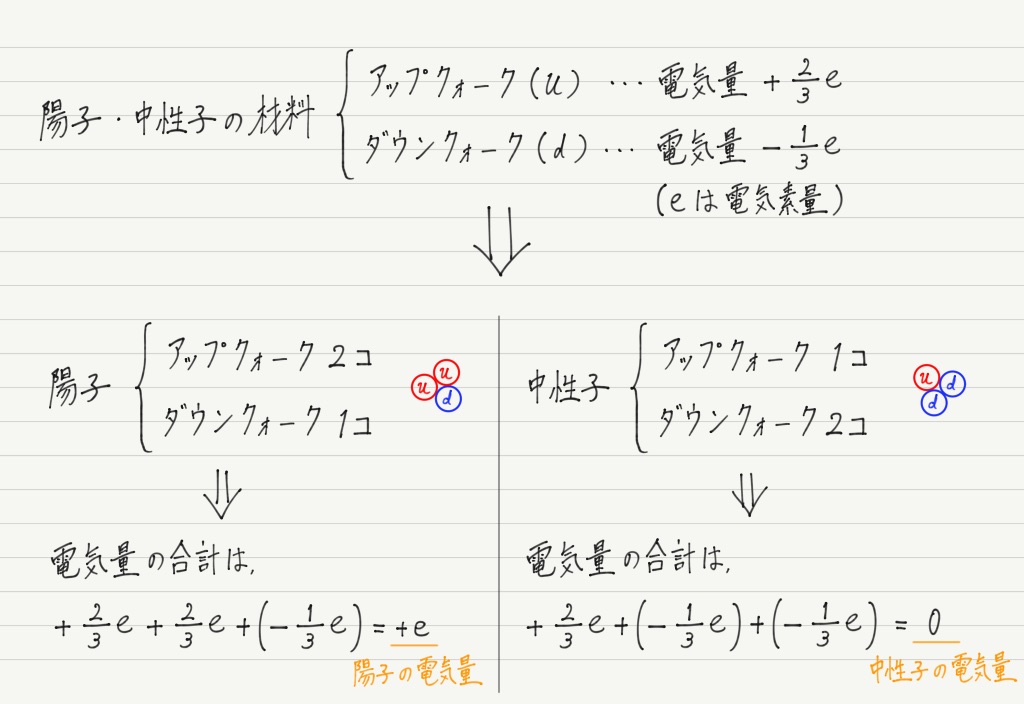 陽子・中性子の材料
アップクォーク(u) … 電気量 +2/3 e
ダウンクォーク(d) … 電気量 −1/3 e
(eは電気素量)
陽子
アップクォーク 2コ
ダウンクォーク 1コ
u u d
電気量の合計は,
+2/3 e + 2/3 e + (−1/3 e) = +e
陽子の電気量
中性子
アップクォーク 1コ
ダウンクォーク 2コ
u d d
電気量の合計は,
+2/3 e + (−1/3 e) + (−1/3 e) = 0
中性子の電気量